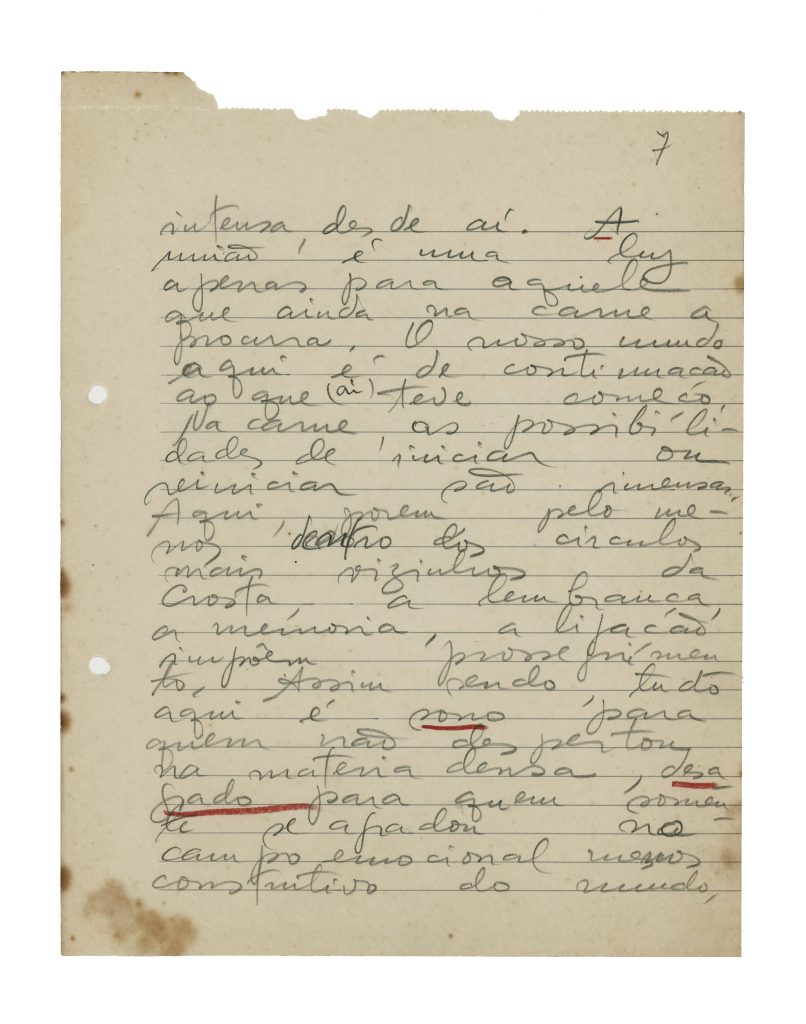 7
intensa desde aí. A
união, é uma luz
apenas para aquele
que ainda na carne a
procura. O nosso mundo
aqui é de continuação
ao que (aí) teve começo.
Na carne as possibili-
dades de iniciar ou
reiniciar são imensas.
Aqui, porem pelo me-
nos dentro dos circulos
mais vizinhos da
Crosta, a lembrança,
a memória, a ligação
impõem prosseguimen
to. Assim sendo tudo
aqui é sono para
quem não despertou
na materia densa, desa
gado para quem somen-
te se apagou no
campo emocional menos
construtivo do mundo,